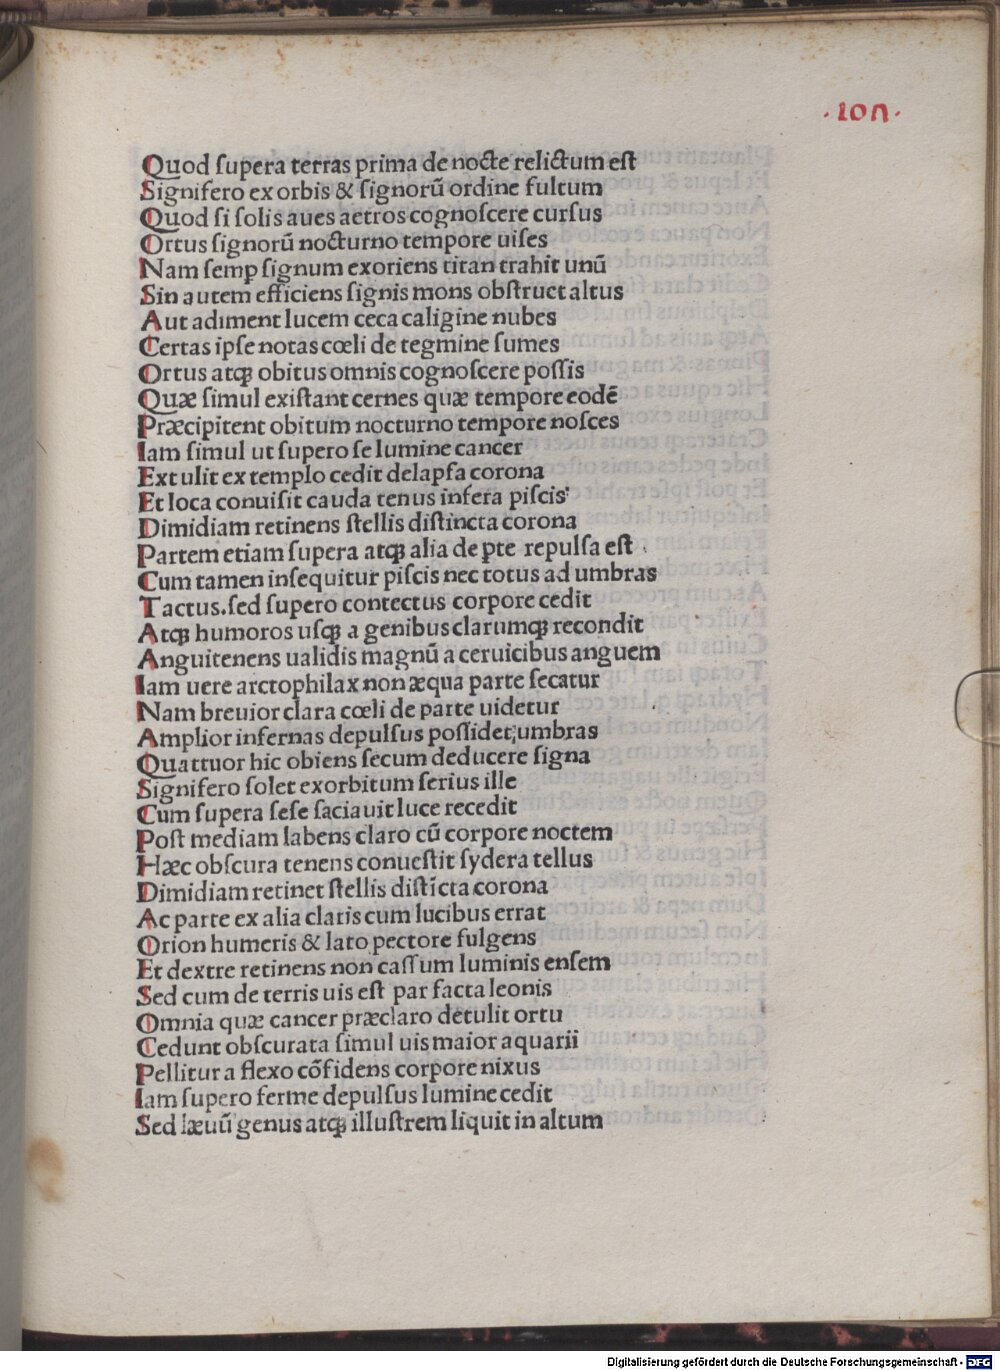 ·10n·
Quod ſupera terras prima de nocte relictum eſt
Signifero ex orbis & ſignorũ ordine fultum
Quod ſi ſolis aues aetros cognoſcere curſus
Ortus ſignorũ nocturno tempore uiſes
Nam ſemꝑ ſignum exoriens titan trahit unũ
Sin autem efficiens ſignis mons obſtruet altus
Aut adiment lucem ceca caligine nubes
Certas ipſe notas cœli de tegmine ſumes
Ortus atqꝫ obitus omnis cognoſcere poſſis
Quæ ſimul exiſtant cernes quæ tempore eodẽ
Præcipitent obitum nocturno tempore noſces
Iam ſimul ut ſupero ſe lumine cancer
Extulit ex templo cedit delapſa corona
Et loca conuiſit cauda tenus infera piſcis
Dimidiam retinens ſtellis diſtincta corona
Partem etiam ſupera atqꝫ alia de ꝑte repulſa eſt .
Cum tamen inſequitur piſcis nec totus ad umbras
Tactus.ſed ſupero contectus corpore cedit
Atqꝫ humoros uſqꝫ a genibus clarumqꝫ recondit
Anguitenens ualidis magnũ a ceruicibus anguem
Iam uere arctophilax non æqua parte ſecatur
Nam breuior clara cœli de parte uidetur
Amplior infernas depulſus poſſidet;umbras
Quattuor hic obiens ſecum deducere ſigna
Signifero ſolet exorbitum ſerius ille
Cum ſupera ſeſe ſaciauit luce recedit
Poſt mediam labens claro cũ corpore noctem
Hæc obſcura tenens conueſtit ſydera tellus
Dimidiam retinet ſtellis diſtĩcta corona
Ac parte ex alia claris cum lucibus errat
Orion humeris & lato pectore fulgens
Et dextre retinens non caſſum luminis enſem
Sed cum de terris uis eſt par facta leonis
Omnia quæ cancer præclaro detulit ortu
Cedunt obſcurata ſimul uis maior aquarii
Pellitur a flexo cõfidens corpore nixus
Iam ſupero ferme depulſus lumine cedit
Sed læuũ genus atqꝫ illuſtrem liquit in altum
Digitalisierung gefördert durch die Deutsche Forschungsgemeinschaft - DFG